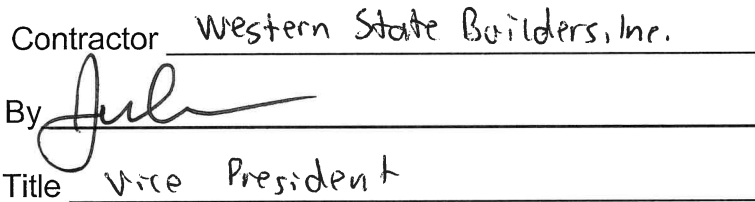 Contractor Western State Builders, Inc.
By
Title Vice President